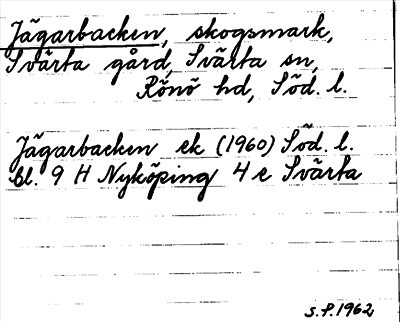 Jägarbacken, skogsmark,
Svärta gård, Svärta sn,
Rönö hd, Söd. l.
Jägarbacken ek (1960) Söd. l.
Bl. 9 H Nyköping 4 e Svärta
S.P. 1962